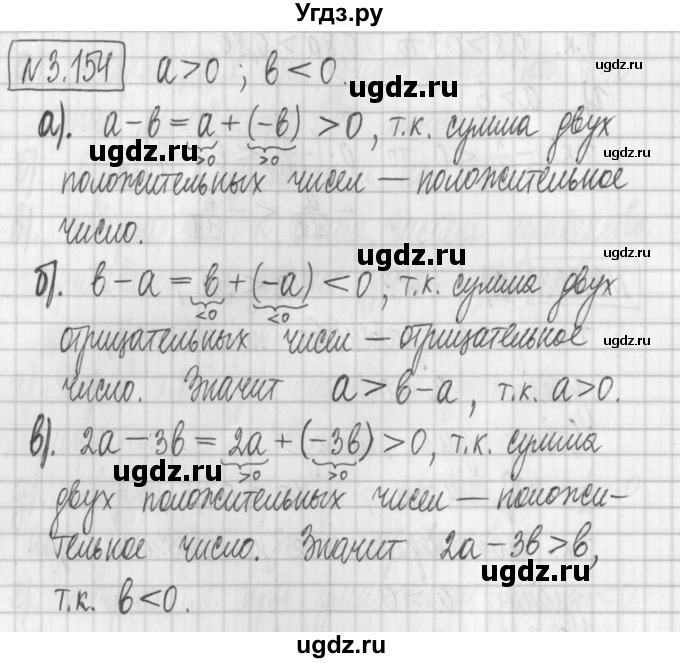 Угдз.ру
№3.154 a>0 ; в<0.
ugdz.ru
а). a-в = a + (-в) >0, т.к. сумма двух
ugdz.ru >0 >0 ugdz.ru
положительных чисел — положительное
число. ugdz.ru
б). в-a = в + (-a) <0, т.к. сумма двух
<0 <0 ugdz.ru
отрицательных чисел — отрицательное
ugdz.ru
число. Значит a>в-a, т.к. a>0.
в). 2a-3в = 2a + (-3в) >0, т.к. сумма
ugdz.ru >0 >0 ugdz.ru
двух положительных чисел — положи-
тельное число. Значит 2a-3в>в,
ugdz.ru
т.к. в<0.
ugdz.ru